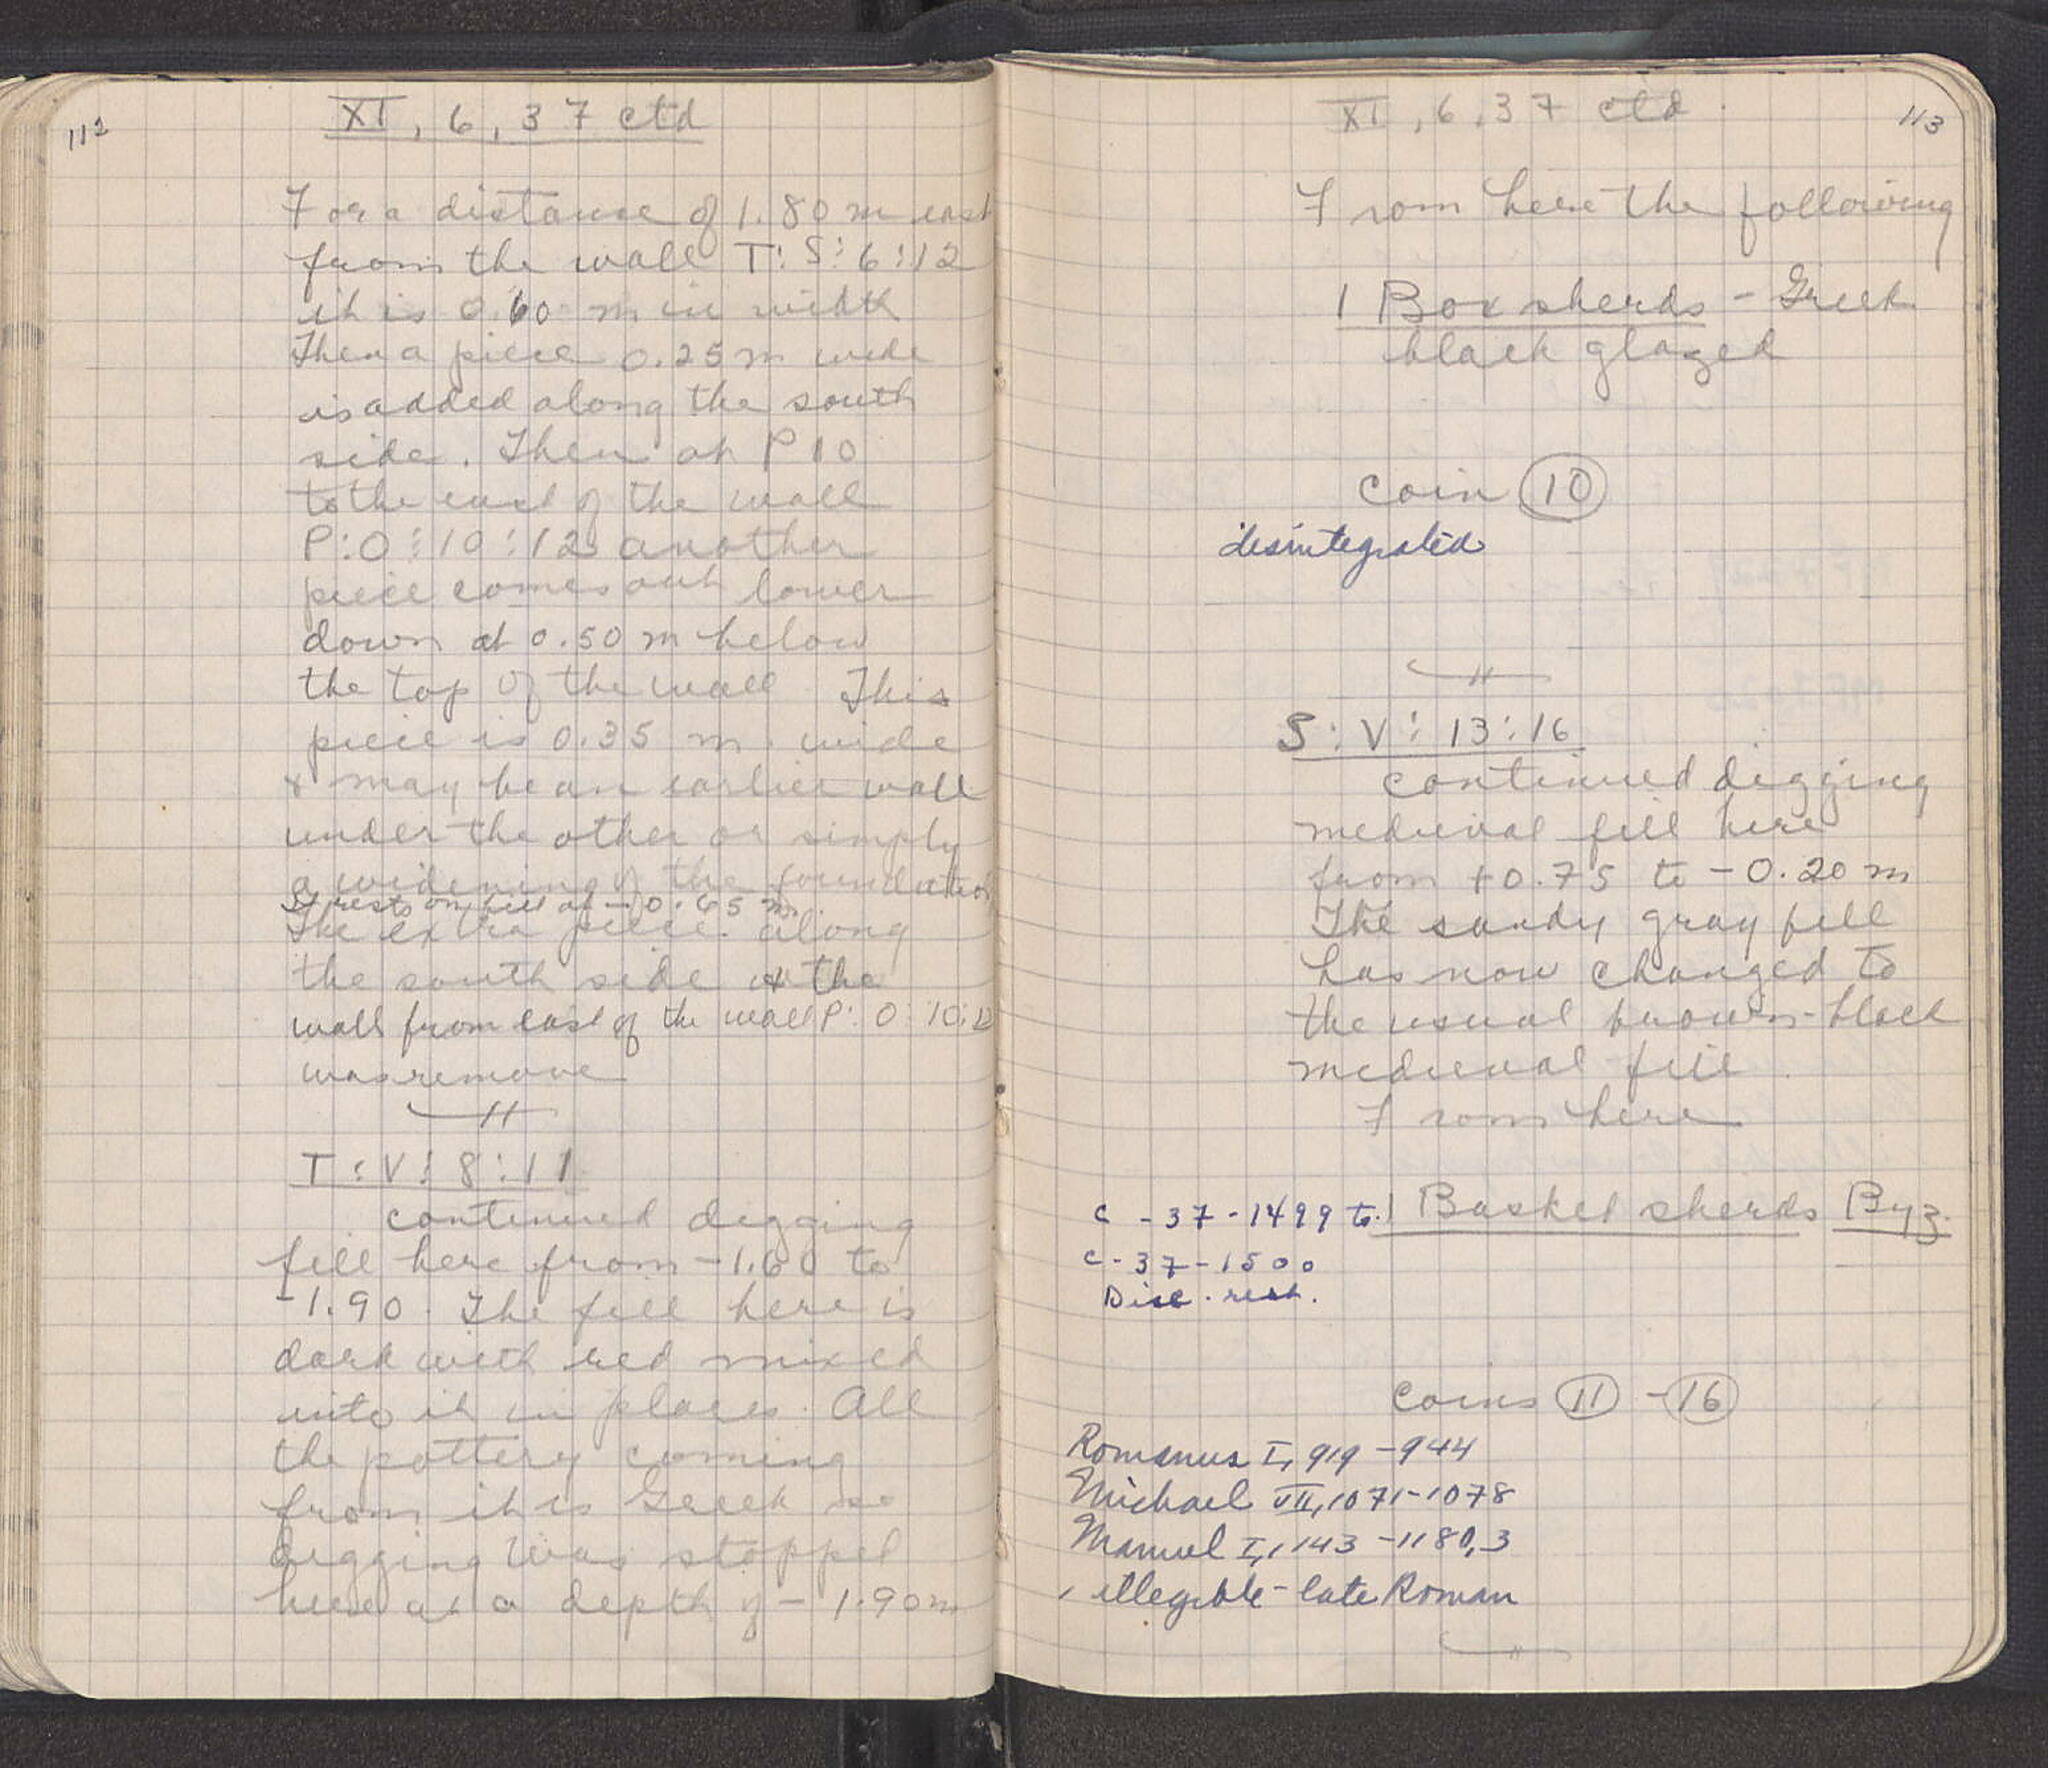 112
XI, 6, 37 ctd
For a distance of 1.80 m east
from the wall T:S:6:12
it is 0.60 m in width
Then a piece 0.25 m wide
is added along the south
side. Then at P 10
to the east of the wall
P:O:10:12 another
piece comes out lower
down at 0.50 m below
the top of the wall This
piece is 0.35 m. wide
& may be an earlier wall
under the other or simply
a widening of the foundation
It rests on fill at -0.65 m.
The extra piece along
the south side of the
wall from east of the wall P:O:10:12
was remove
T:V:8:11
continued digging
fill here from -1.60 to
-1.90. The fill here is
dark with red mixed
into it in places. All
the pottery coming
from it is Greek so
digging was stopped
here at a depth of -1.90m
113
XI, 6, 37 ctd
From here the following
1 Box sherds - Greek
black glazed
coin 10
disintegrated
S:V:13:16
continued digging
medieval fill here
from +0.75 to -0.20 m
The sandy gray fill
has now changed to
the usual brown-black
medieval fill.
From here
C-37-1499 to 1 Basket sherds Byz.
C-37-1500
Disc. rest.
coins 11 - 16
Romanus I, 919-944
Michael VII, 1071-1078
Manuel I, 1143-1180, 3
1 illegible - late Roman